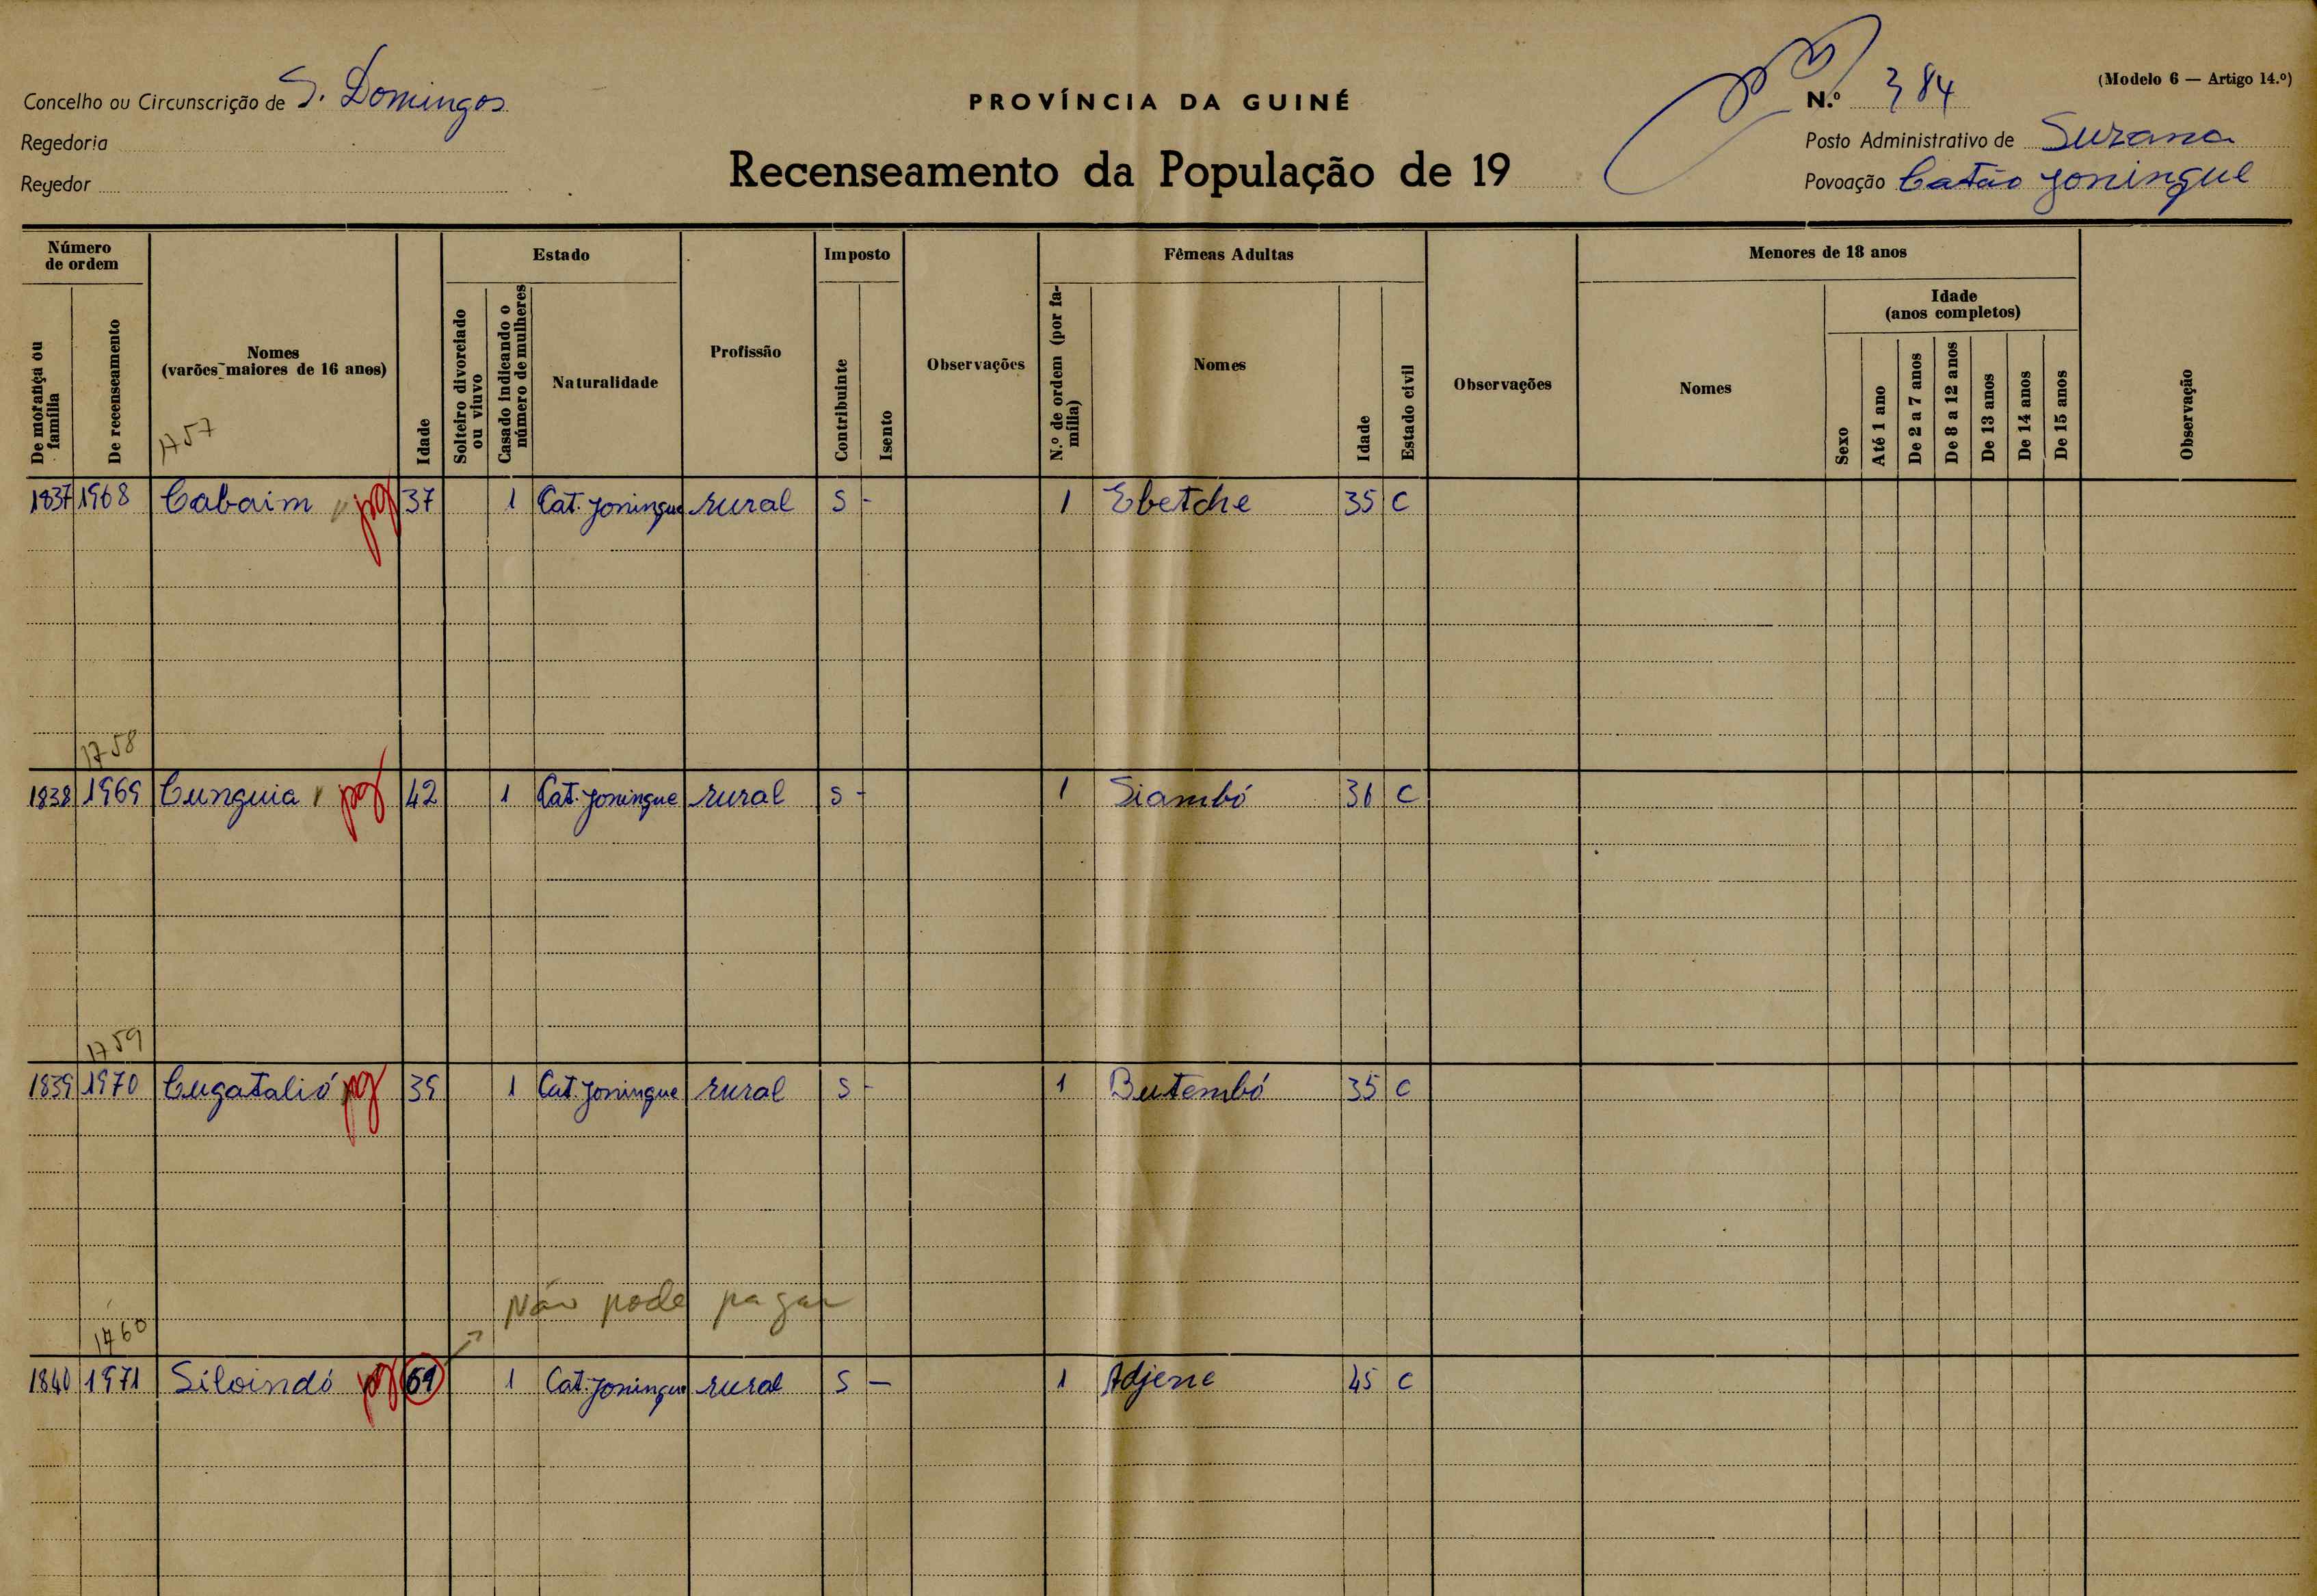 (Modelo 6 — Artigo 14.º)
Concelho ou Circunscrição de S. Domingos
PROVÍNCIA DA GUINÉ
N.º 384
Regedoria
Posto Administrativo de Suzana
Regedor
Recenseamento da População de 19
Povoação Catão Joningue
Número de ordem
Estado
Imposto
Fêmeas Adultas
Menores de 18 anos
De morança ou família
De recenseamento
Nomes
(varões maiores de 16 anos)
Idade
Solteiro divorciado ou viuvo
Casado indicando o número de mulheres
Naturalidade
Profissão
Contribuinte
Isento
Observações
N.º de ordem (por família)
Nomes
Idade
Estado civil
Observações
Nomes
Idade
(anos completos)
Sexo
Até 1 ano
De 2 a 7 anos
De 8 a 12 anos
De 13 anos
De 14 anos
De 15 anos
Observação
1757
1837 1968 Cabaim pg 37 1 Cat. Joningue rural S - 1 Ebetche 35 C
1758
1838 1969 Cunguia pg 42 1 Cat. Joningue rural S - 1 Siambó 36 C
1759
1839 1970 Cugatalió pg 39 1 Cat. Joningue rural S - 1 Butembó 35 C
Não pode pagar
1760
1840 1971 Siloindó pg 61 1 Cat. Joningue rural S — 1 Adjene 45 C